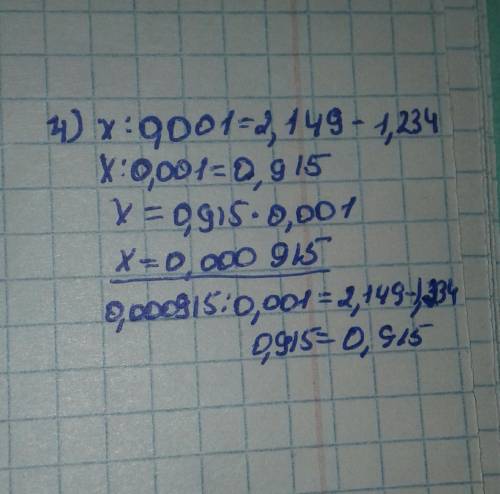 4) x:0,001=2,149-1,234
x:0,001=0,915
x=0,915·0,001
x=0,000 915
0,000915:0,001=2,149-1,234
0,915=0,915